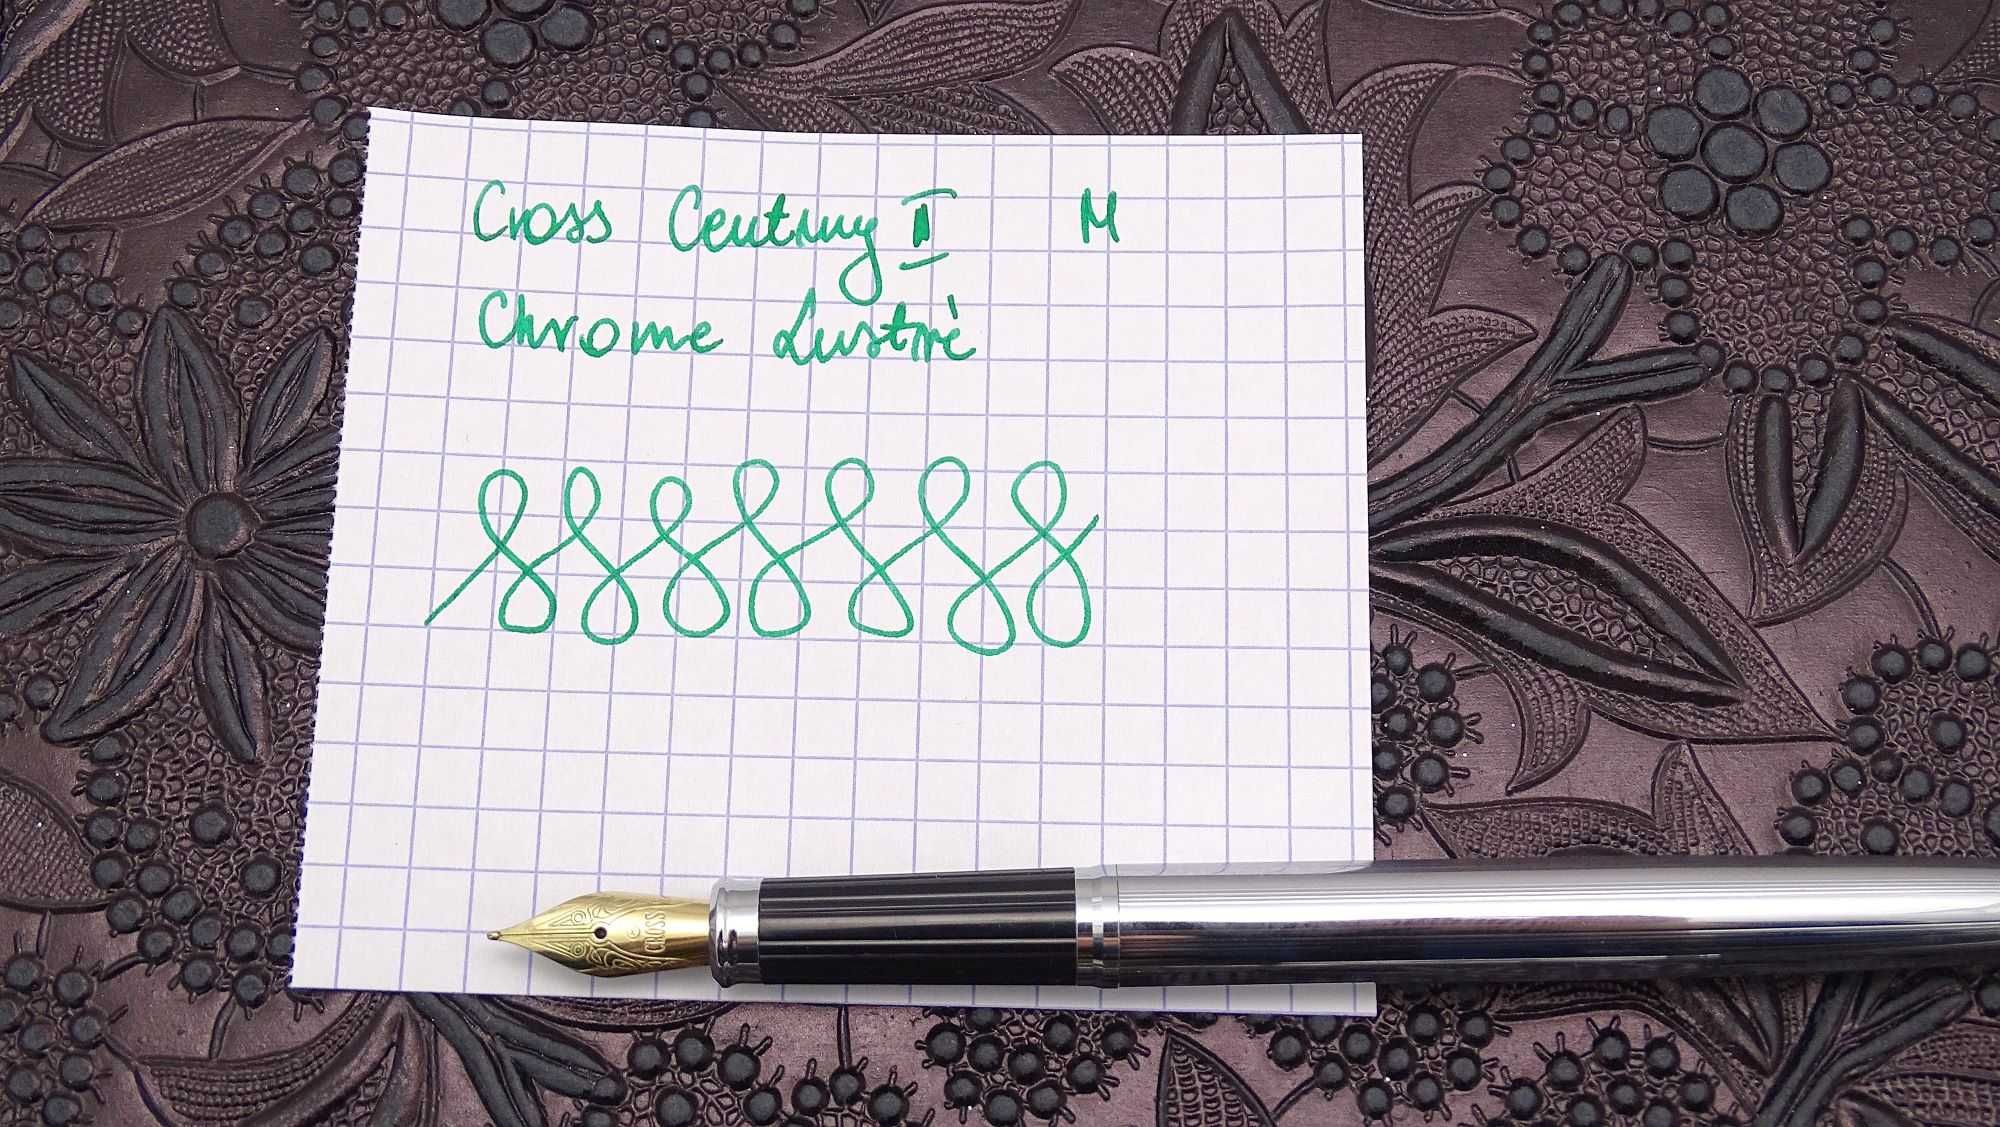 Cross Century II M
Chrome Lustré
CROSS